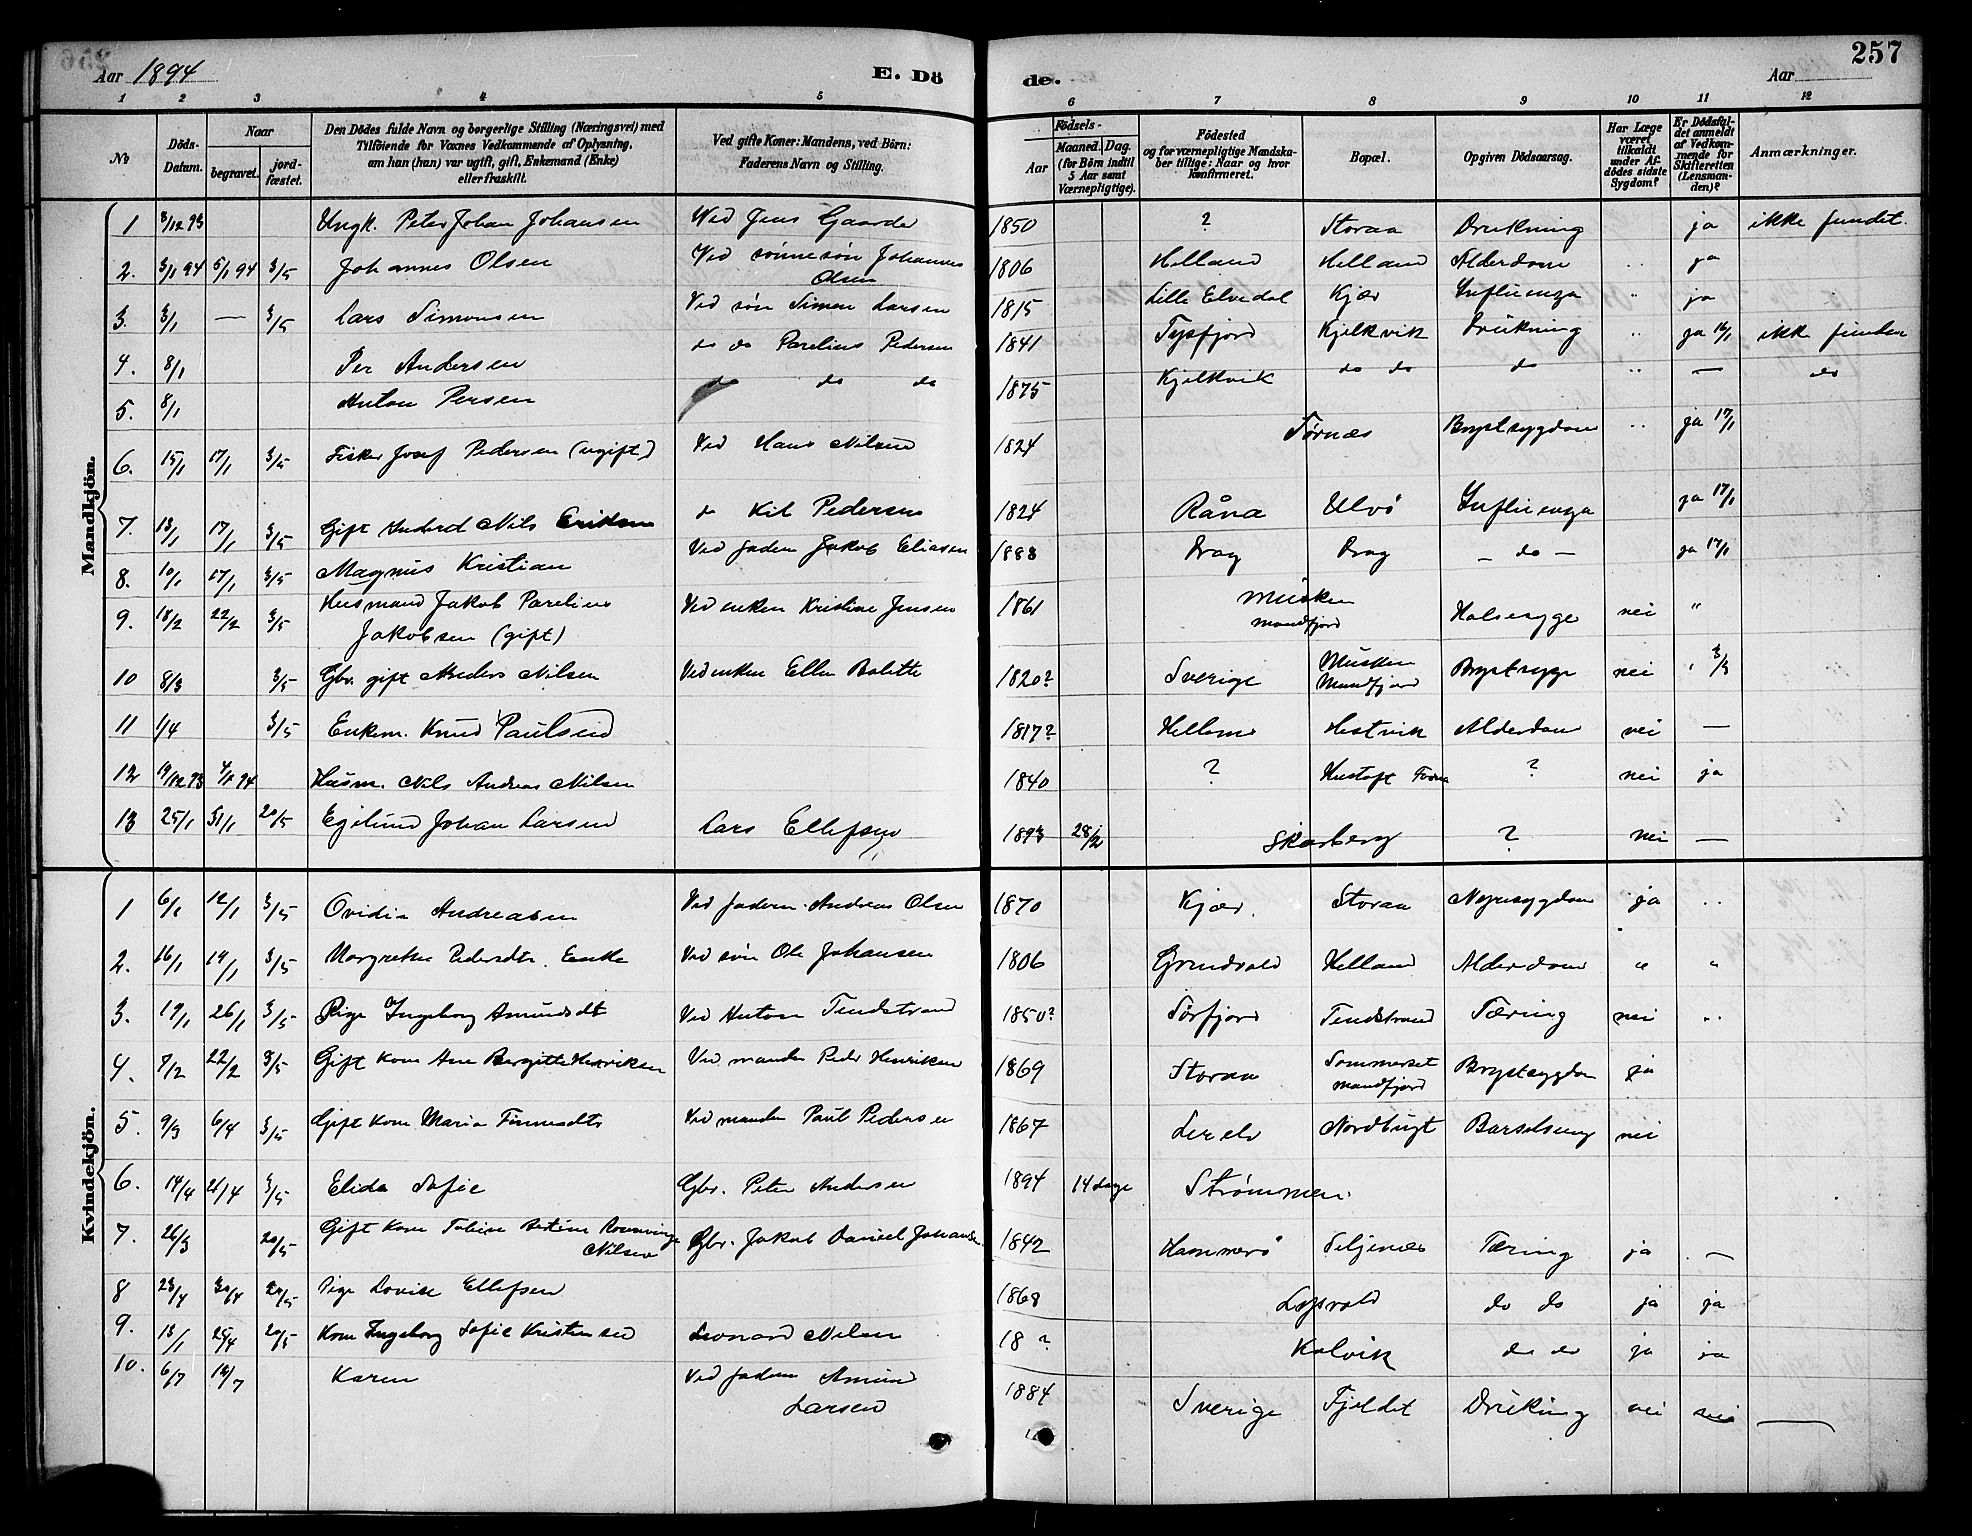 257
Aar 1894 E. Döde. Aar
1 2 3 4 5 6 7 8 9 10 11 12
No
Döds-Datum.
Naar
begravet.
jord-fæstet.
Den Dödes fulde Navn og borgerlige Stilling (Næringsvei) med
Tilföiende for Voxnes Vedkommende af Oplysning,
om han (hun) var ugift, gift, Enkemand (Enke)
eller fraskilt.
Ved gifte Koner: Mandens, ved Börn:
Faderens Navn og Stilling.
Födsels-
Aar
Maaned. Dag.
(for Börn indtil
5 Aar samt
Værnepligtige).
Födested
og for værnepligtige Mandska-
ber tillige: Naar og hvor
konfirmeret.
Bopæl.
Opgiven Dödsaarsag.
Har Læge
været
tilkaldt
under Af-
dödes sidste
Sygdom?
Er Dödsfal-
det anmeldt
af Vedkom-
mende for
Skifteretten
(Lensman-
den)?
Anmærkninger.
Mandkjön.
1 3/12 93 Ungk. Peter Johan Johansen Ved Jens Gaarder 1850 ? Storaa Drukning ja ikke fundet.
2. 3/1 94 5/1 94 3/5 Johannes Olsen Ved sønnesøn Johannes Olsen 1806 Helland Helland Alderdom .. ja
3. 3/1 — 3/5 Lars Simonsen Ved søn Simon Larsen 1815 Lille Elvedal Kjær Influenza " ja
4. 8/1 Per Andersen do do Parelius Pedersen 1841 Tysfjord Kjelkvik Drukning .. ja ikke funden
5. 8/1 Anton Persen do do do 1875 Kjelkvik do do do .. — do
6. 15/1 17/1 3/5 Fisker Josef Pedersen (ugift) Ved Hans Nilsen 1824 Sørnæs Brystsygdom .. ja 17/1
7. 13/1 17/1 3/5 Gift Inderst Nils Eriksen do Kit Pedersen 1824 Råna Ulvö Influenza ja 17/1
8. 10/1 17/1 3/5 Magnus Kristian Ved faderen Jakob Eliasen 1888 Drag Drag — do — ja 17/1
9. 18/2 22/2 3/5 Husmand Jakob Parelius Jakobsen (gift) Ved enken Kristine Jensen 1861 Musken mandfjord Halsesyge nei "
10 8/3 3/5 Gbr. gift Anders Nilsen Ved enken Ellen Bolette 1820? Sverige Musken Mandfjord Brystsyge nei
11 1/4 3/5 Enkem. Knud Paulsen 1817? Hellemo Hestvik Alderdom nei —
12 19/12 93 4/1 94 Husm. Nils Andreas Nilsen 1840 ? ? nei ja
13 25/1 31/1 20/5 Egilund Johan Larsen Lars Ellefsen 1893 28/2 Skarberg ? nei —
Kvindekjön.
1 6/1 12/1 3/5 Ovidia Andreasen Ved faderen Andreas Olsen 1870 Kjær. Storaa Nyresygdom ja ..
2. 16/1 19/1 3/5 Margrethe Pedersdtr. Enke Ved søn Ole Johansen 1806 Grundvold Helland Alderdom " "
3. 19/1 26/1 3/5 Pige Ingeborg Amundsdt Ved Anton Tindstrand 1850? Sørfjord Tindstrand Tæring nei ..
4. 7/2 22/2 3/5 Gift Kone Ane Bergitte Henriksen Ved manden Peder Henriksen 1869 Storaa Sommerset mandfjord Brystsygdom ja
5. 9/3 6/4 3/5 Gift Kone Maria Finnesdtr Ved manden Paul Pedersen 1867 Lerelv Nordbugt Barselseng nei
6. 14/4 21/4 3/5 Elida Sofie Gbr. Peter Andersen 1894 14 dage Strømmen.
7. 26/3 20/5 Gift Kone Nilsen Gbr. Jakob Daniel Johansen 1842 Hammerö Siljenes Tæring ja —
8 23/4 30/4 20/5 Pige Lovise Ellefsen 1868 Løpvold do do ja ja
9. 18/1 25/4 20/5 Kone Ingeborg Sofie Kristensen Leonard Nilsen 18 ? Kalvik do do ja ja
10. 6/7 Karen Ved faderen Amund Larsen 1884 Sverige Fjeldet Drukning nei nei —